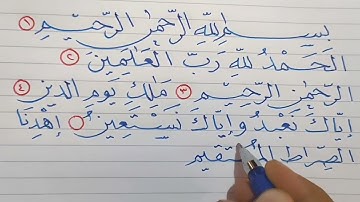 بِسْمِ اللهِ الرَّحْمٰنِ الرَّحِيْمِ ١
اَلْحَمْدُ لِلّٰهِ رَبِّ الْعَالَمِيْنَ ٢
الرَّحْمٰنِ الرَّحِيْمِ ٣ مَلِكِ يَوْمِ الدِّيْنِ ٤
اِيَّاكَ نَعْبُدُ وَاِيَّاكَ نَسْتَعِيْنُ اِهْدِنَا
الصِّرَاطَ الْمُسْتَقِيْم